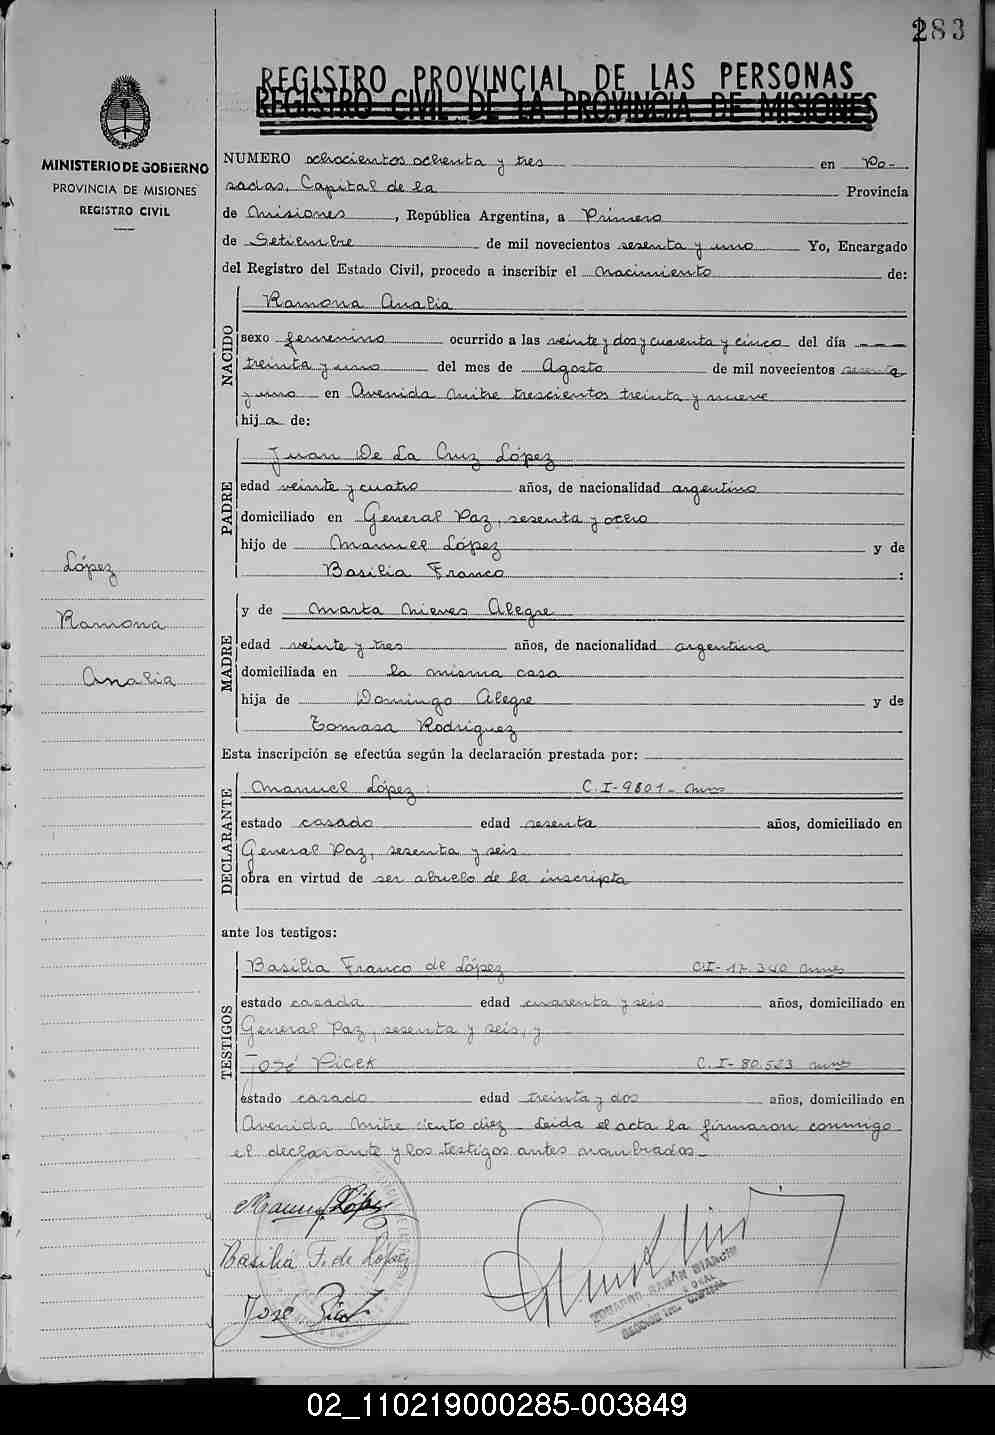 283
REGISTRO PROVINCIAL DE LAS PERSONAS
REGISTRO CIVIL DE LA PROVINCIA DE MISIONES
MINISTERIO DE GOBIERNO
PROVINCIA DE MISIONES
REGISTRO CIVIL
NUMERO ochocientos ochenta y tres en Po-
sadas, Capital de la Provincia
de Misiones, República Argentina, a Primero
de Setiembre de mil novecientos sesenta y uno Yo, Encargado
del Registro del Estado Civil, procedo a inscribir el nacimiento de:
NACIDO
Ramona Analia
sexo femenino ocurrido a las veinte y dos y cuarenta y cinco del día
treinta y uno del mes de Agosto de mil novecientos sesenta
y uno en Avenida Mitre trescientos treinta y nueve
hija de:
PADRE
Juan De La Cruz López
edad veinte y cuatro años, de nacionalidad argentino
domiciliado en General Paz, sesenta y ocho
hijo de Manuel López y de
Basilia Franco :
López
Ramona
Analia
MADRE
y de Marta Nieves Alegre
edad veinte y tres años, de nacionalidad argentina
domiciliada en la misma casa
hija de Domingo Alegre y de
Tomasa Rodriguez
Esta inscripción se efectúa según la declaración prestada por:
DECLARANTE
Manuel López: C.I-9801- Mnes
estado casado edad sesenta años, domiciliado en
General Paz, sesenta y seis
obra en virtud de ser abuelo de la inscripta
ante los testigos:
TESTIGOS
Basilia Franco de López C.I-17.340 Mnes
estado casada edad cuarenta y seis años, domiciliado en
General Paz, sesenta y seis, y
José Picek C.I-80.523 Mnes
estado casado edad treinta y dos años, domiciliado en
Avenida Mitre ciento diez - Leida el acta la firmaron conmigo
el declarante y los testigos antes nombrados-
Manuel López
Basilia F. de López
José Picek
RAMÓN BIANCHI
02_110219000285-003849